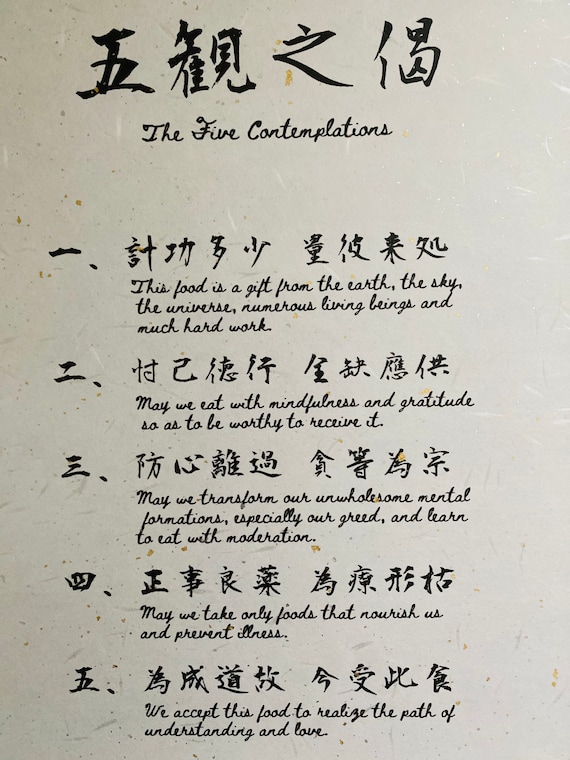 五観之偈
The Five Contemplations
一、計功多少 量彼来処
This food is a gift from the earth, the sky,
the universe, numerous living beings and
much hard work.
二、忖己德行 全缺應供
May we eat with mindfulness and gratitude
so as to be worthy to receive it.
三、防心離過 貪等為宗
May we transform our unwholesome mental
formations, especially our greed, and learn
to eat with moderation.
四、正事良薬 為療形枯
May we take only foods that nourish us
and prevent illness.
五、為成道故 今受此食
We accept this food to realize the path of
understanding and love.